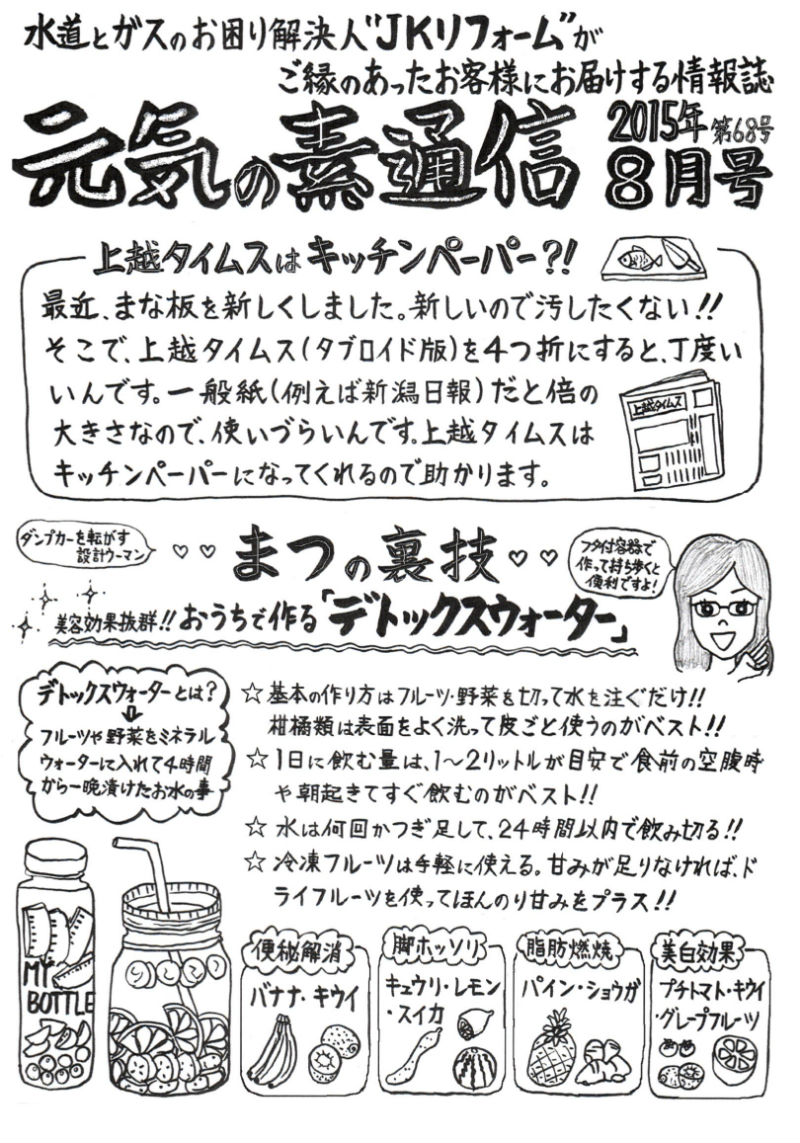 水道とガスのお困り解決人"JKリフォーム"が
ご縁のあったお客様にお届けする情報誌
元気の素通信
2015年 第68号
8月号
上越タイムスはキッチンペーパー?!
最近、まな板を新しくしました。新しいので汚したくない!!
そこで、上越タイムス(タブロイド版)を4つ折にすると、丁度い
いんです。一般紙(例えば新潟日報)だと倍の
大きさなので、使いづらいんです。上越タイムスは
キッチンペーパーになってくれるので助かります。
上越タイムス
ダンプカーを転がす
設計ウーマン
♡♡まつの裏技♡♡
フタ付容器で
作って持ち歩くと
便利ですよ!
美容効果抜群!!おうちで作る「デトックスウォーター」
デトックスウォーターとは?
⇩
フルーツや野菜をミネラル
ウォーターに入れて4時間
から一晩漬けたお水の事
☆基本の作り方はフルーツ・野菜を切って水を注ぐだけ!!
柑橘類は表面をよく洗って皮ごと使うのがベスト!!
☆1日に飲む量は、1~2リットルが目安で食前の空腹時
や朝起きてすぐ飲むのがベスト!!
☆水は何回かつぎ足して、24時間以内で飲み切る!!
☆冷凍フルーツは手軽に使える。甘みが足りなければ、ド
ライフルーツを使ってほんのり甘みをプラス!!
MY
BOTTLE
便秘解消
バナナ・キウイ
脚ホッソリ
キュウリ・レモン
・スイカ
脂肪燃焼
パイン・ショウガ
美白効果
プチトマト・キウイ
・グレープフルーツ